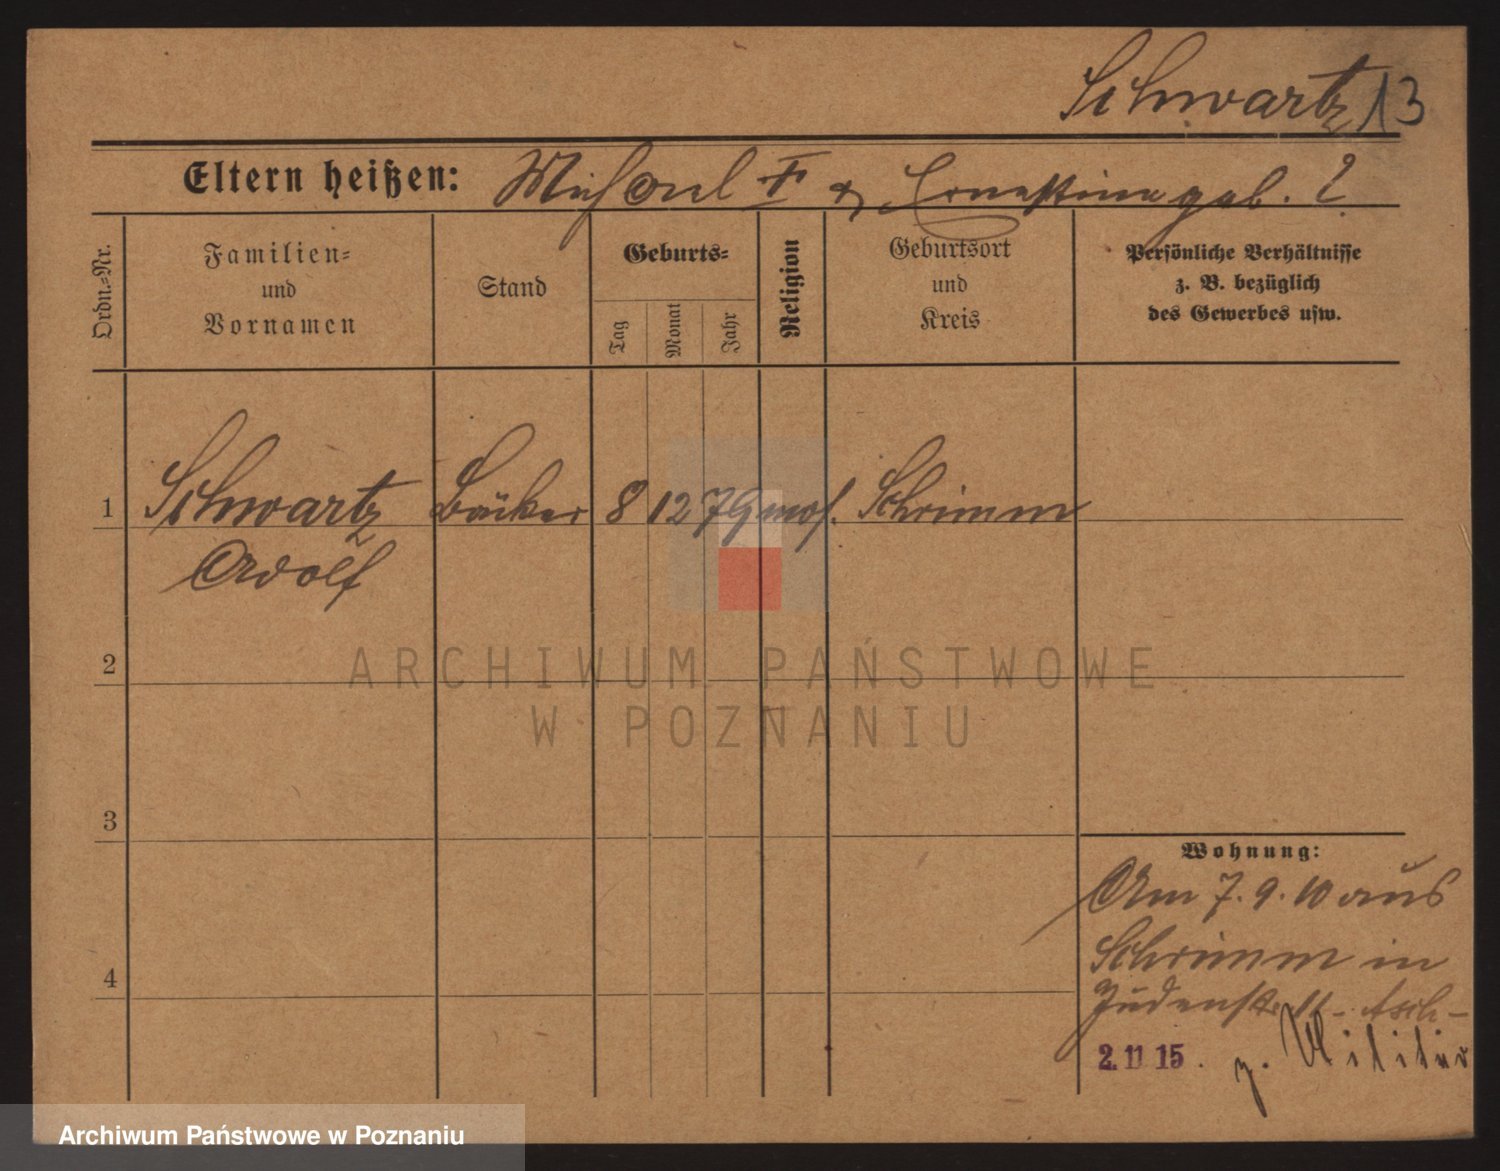 Schwartz 13
Eltern heißen: Michael † & Ernestine geb. ?
Ordn.-Nr.
Familien-
und
Vornamen
Stand
Geburts-
Tag
Monat
Jahr
Religion
Geburtsort
und
Kreis
Persönliche Verhältnisse
z. B. bezüglich
des Gewerbes usw.
1 Schwartz Bäcker 8 12 79 mos. Schrimm
Adolf
2
3
4
Wohnung:
Am 7.9.10 aus
Schrimm in
Judenstr. 11 - Asch -
2. 11 15. z. Militär
ARCHIWUM PAŃSTWOWE
W POZNANIU
Archiwum Państwowe w Poznaniu